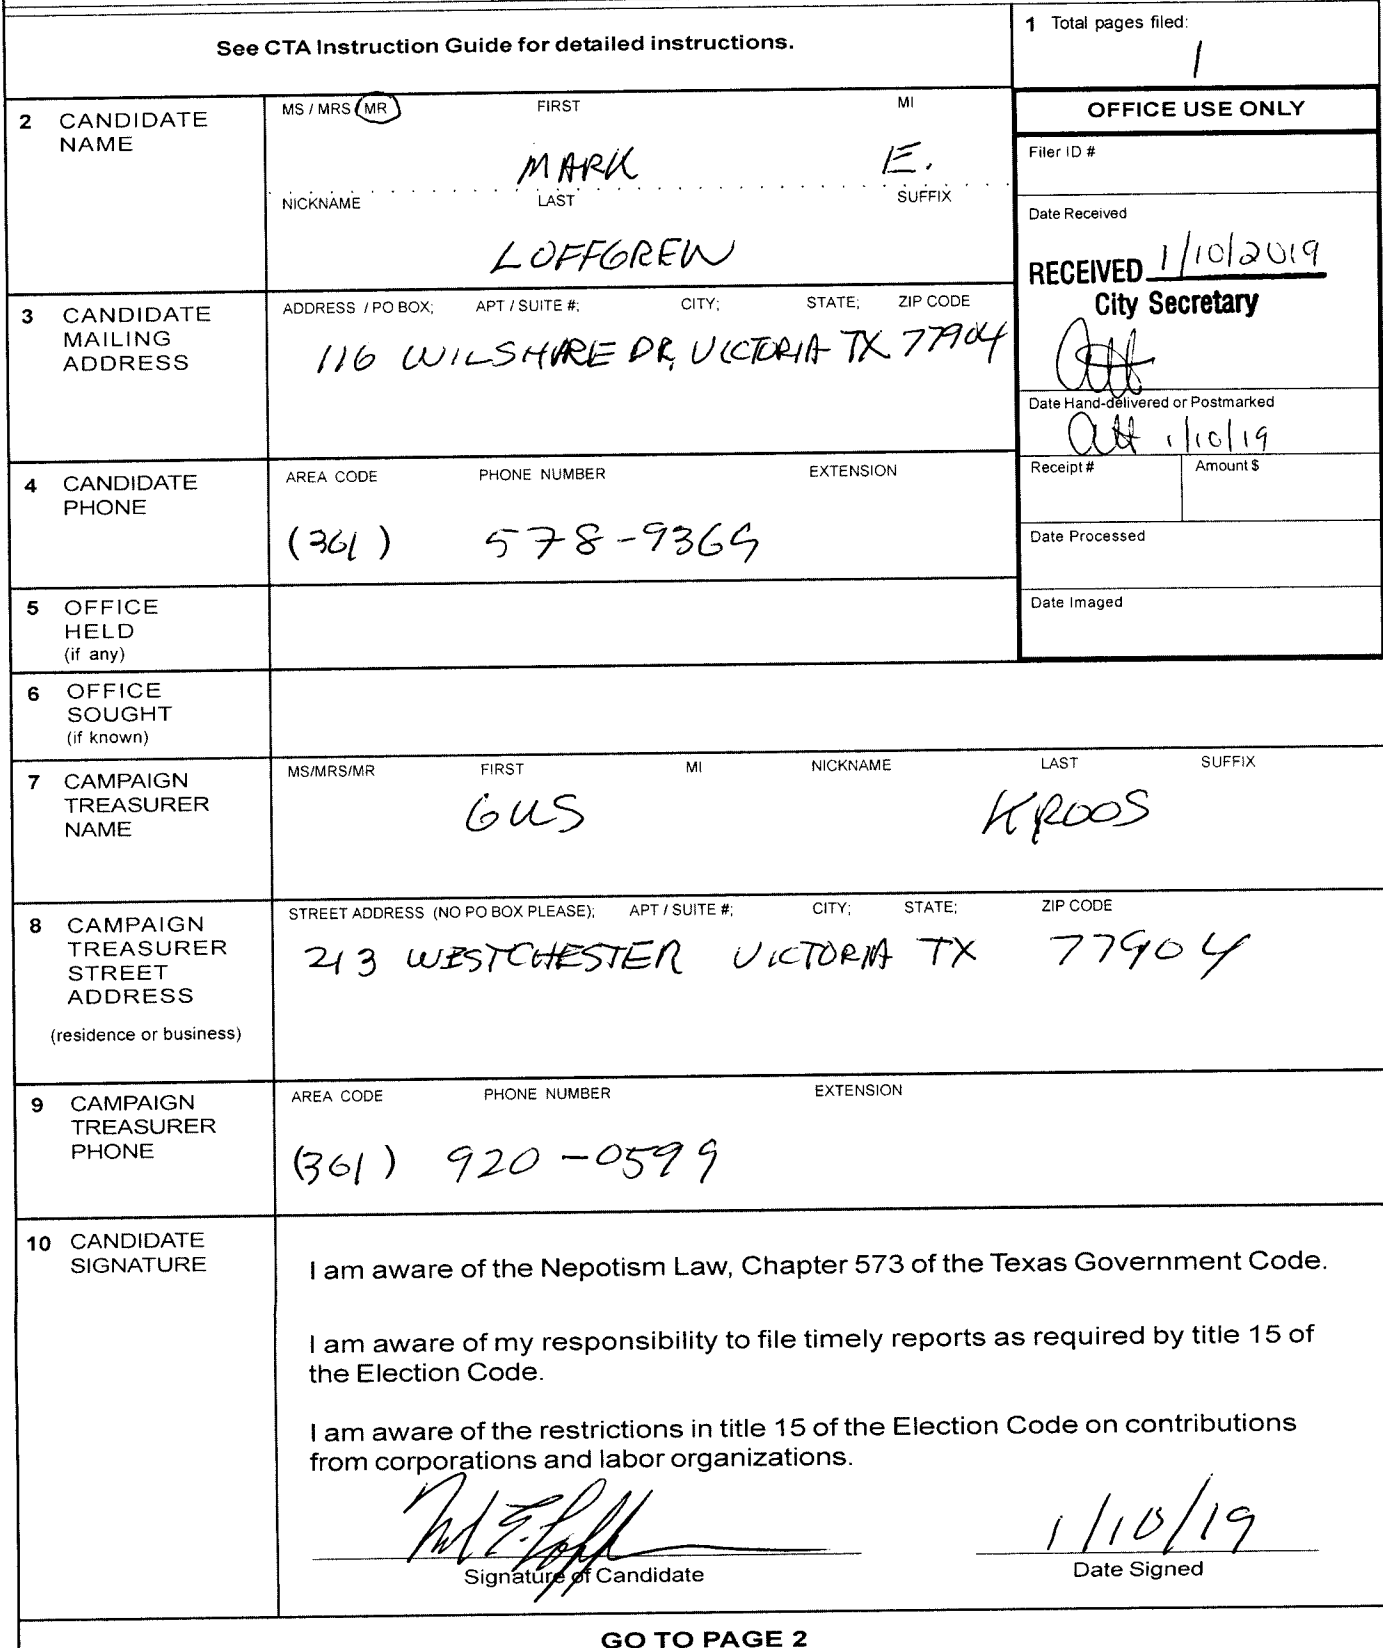 See CTA Instruction Guide for detailed instructions.
1 Total pages filed:
1
2 CANDIDATE NAME
MS / MRS / MR FIRST MI
MARK E.
NICKNAME LAST SUFFIX
LOFFGREN
OFFICE USE ONLY
Filer ID #
Date Received
RECEIVED 1/10/2019
City Secretary
Date Hand-delivered or Postmarked
1/10/19
Receipt # Amount $
Date Processed
Date Imaged
3 CANDIDATE MAILING ADDRESS
ADDRESS / PO BOX; APT / SUITE #; CITY; STATE; ZIP CODE
116 WILSHIRE DR, VICTORIA TX 77904
4 CANDIDATE PHONE
AREA CODE PHONE NUMBER EXTENSION
(361) 578-9369
5 OFFICE HELD (if any)
6 OFFICE SOUGHT (if known)
7 CAMPAIGN TREASURER NAME
MS/MRS/MR FIRST MI NICKNAME LAST SUFFIX
GUS KROOS
8 CAMPAIGN TREASURER STREET ADDRESS
(residence or business)
STREET ADDRESS (NO PO BOX PLEASE); APT / SUITE #; CITY; STATE; ZIP CODE
213 WESTCHESTER VICTORIA TX 77904
9 CAMPAIGN TREASURER PHONE
AREA CODE PHONE NUMBER EXTENSION
(361) 920-0599
10 CANDIDATE SIGNATURE
I am aware of the Nepotism Law, Chapter 573 of the Texas Government Code.
I am aware of my responsibility to file timely reports as required by title 15 of
the Election Code.
I am aware of the restrictions in title 15 of the Election Code on contributions
from corporations and labor organizations.
1/10/19
Signature of Candidate Date Signed
GO TO PAGE 2